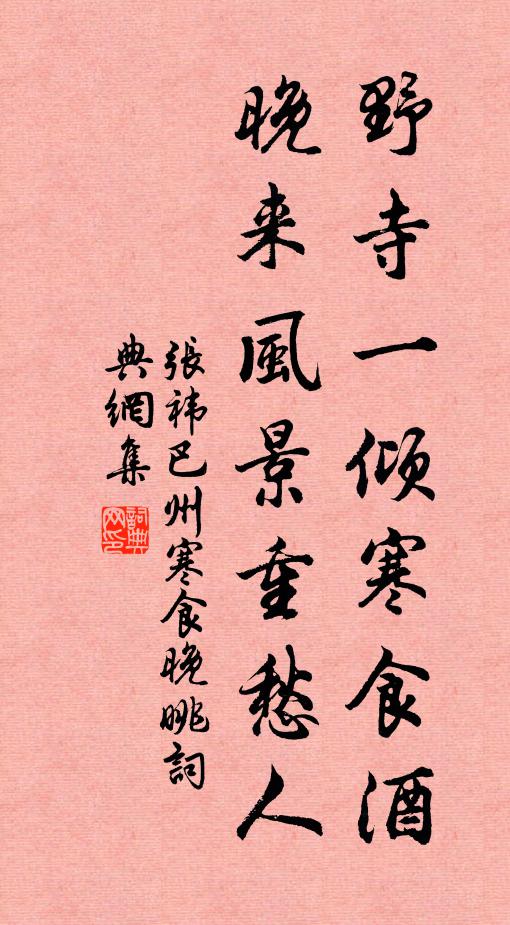 野寺一倾寒食酒
晚来風景重愁人
張祎巴州寒食晚眺詞
典網集
詞典网印